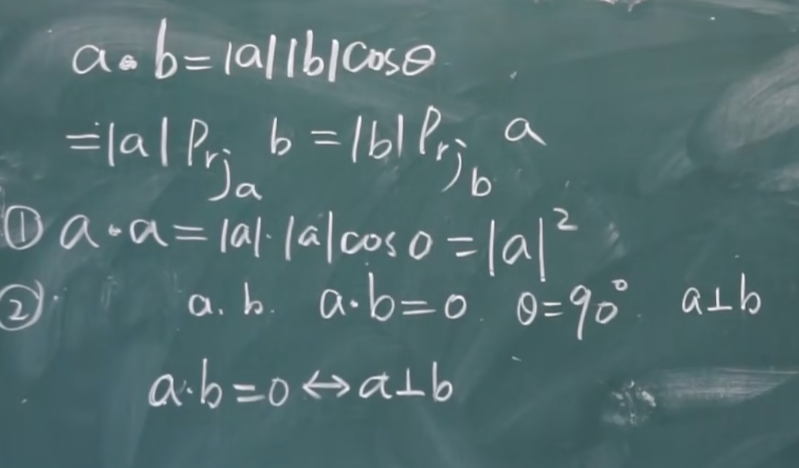 a·b=|a||b|cosθ
=|a|Prj_a b=|b|Prj_b a
① a·a=|a|·|a|cos0=|a|²
② a. b. a·b=0. θ=90°. a⊥b
a·b=0↔a⊥b